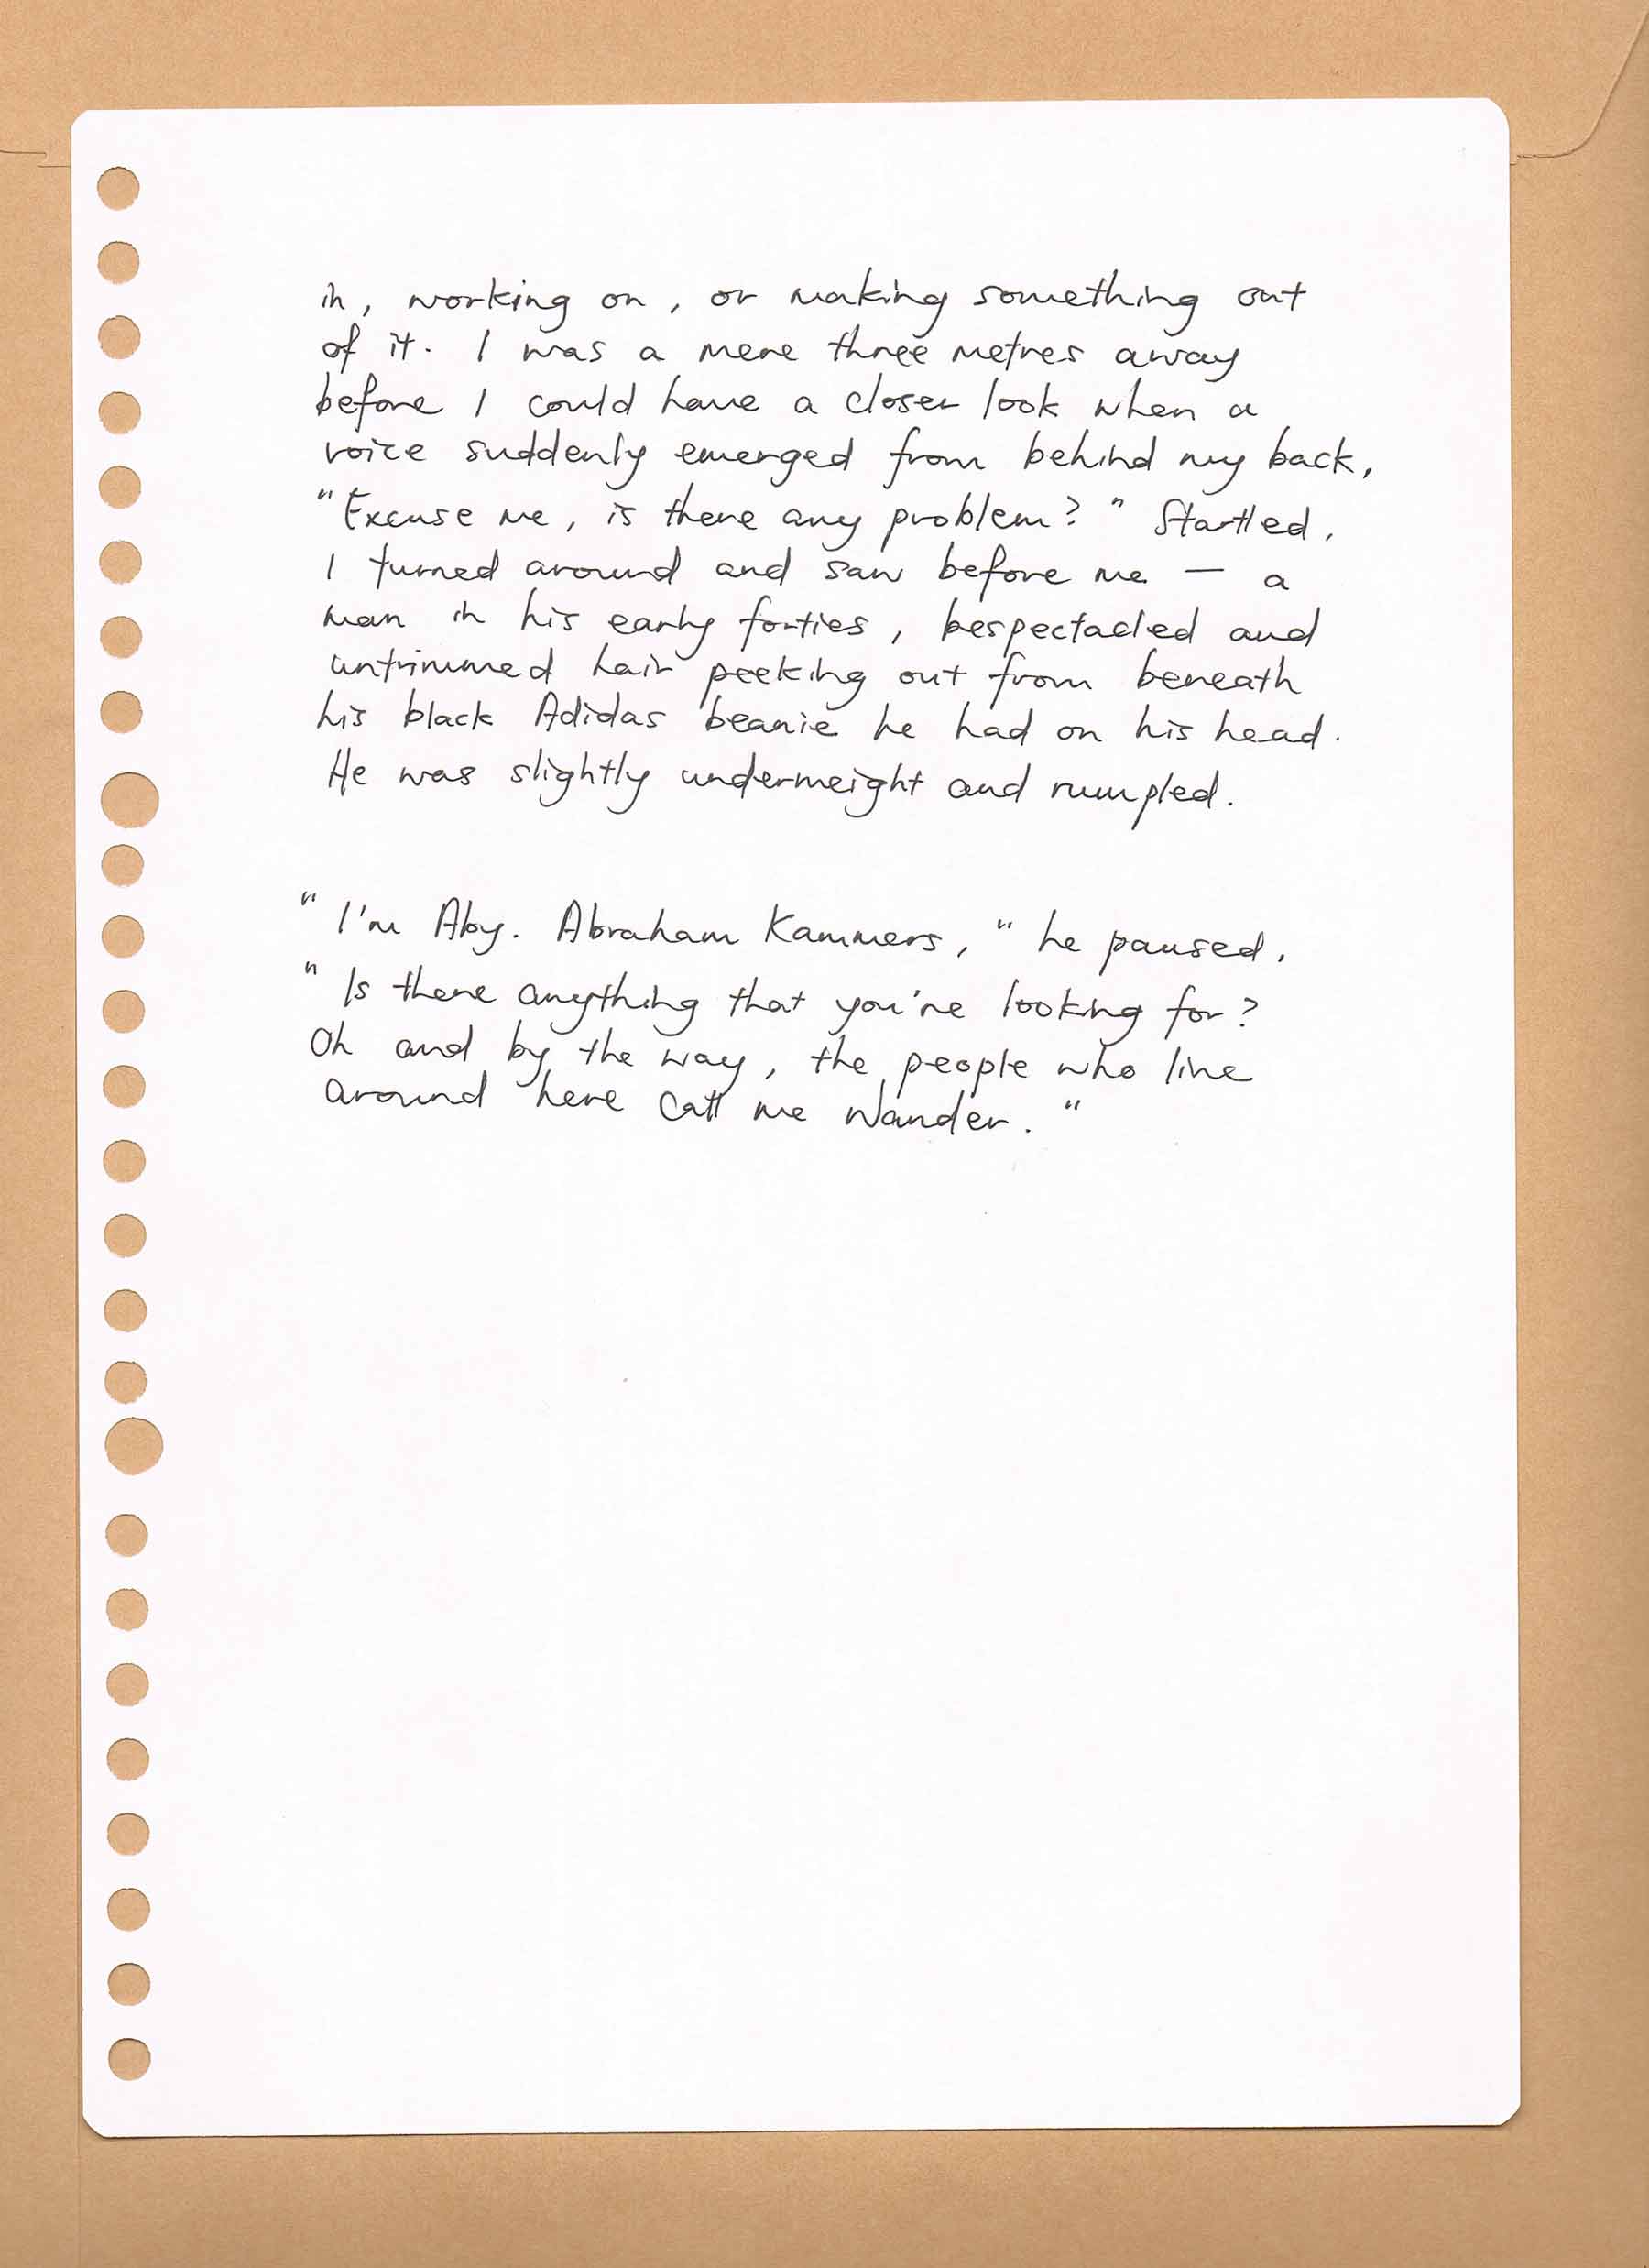 in, working on, or making something out
of it. I was a mere three metres away
before I could have a closer look when a
voice suddenly emerged from behind my back,
"Excuse me, is there any problem?" Startled,
I turned around and saw before me — a
man in his early forties, bespectacled and
untrimmed hair peeking out from beneath
his black Adidas beanie he had on his head.
He was slightly underweight and rumpled.
"I'm Aby. Abraham Kammers," he paused,
"Is there anything that you're looking for?
Oh and by the way, the people who live
around here call me Wander."